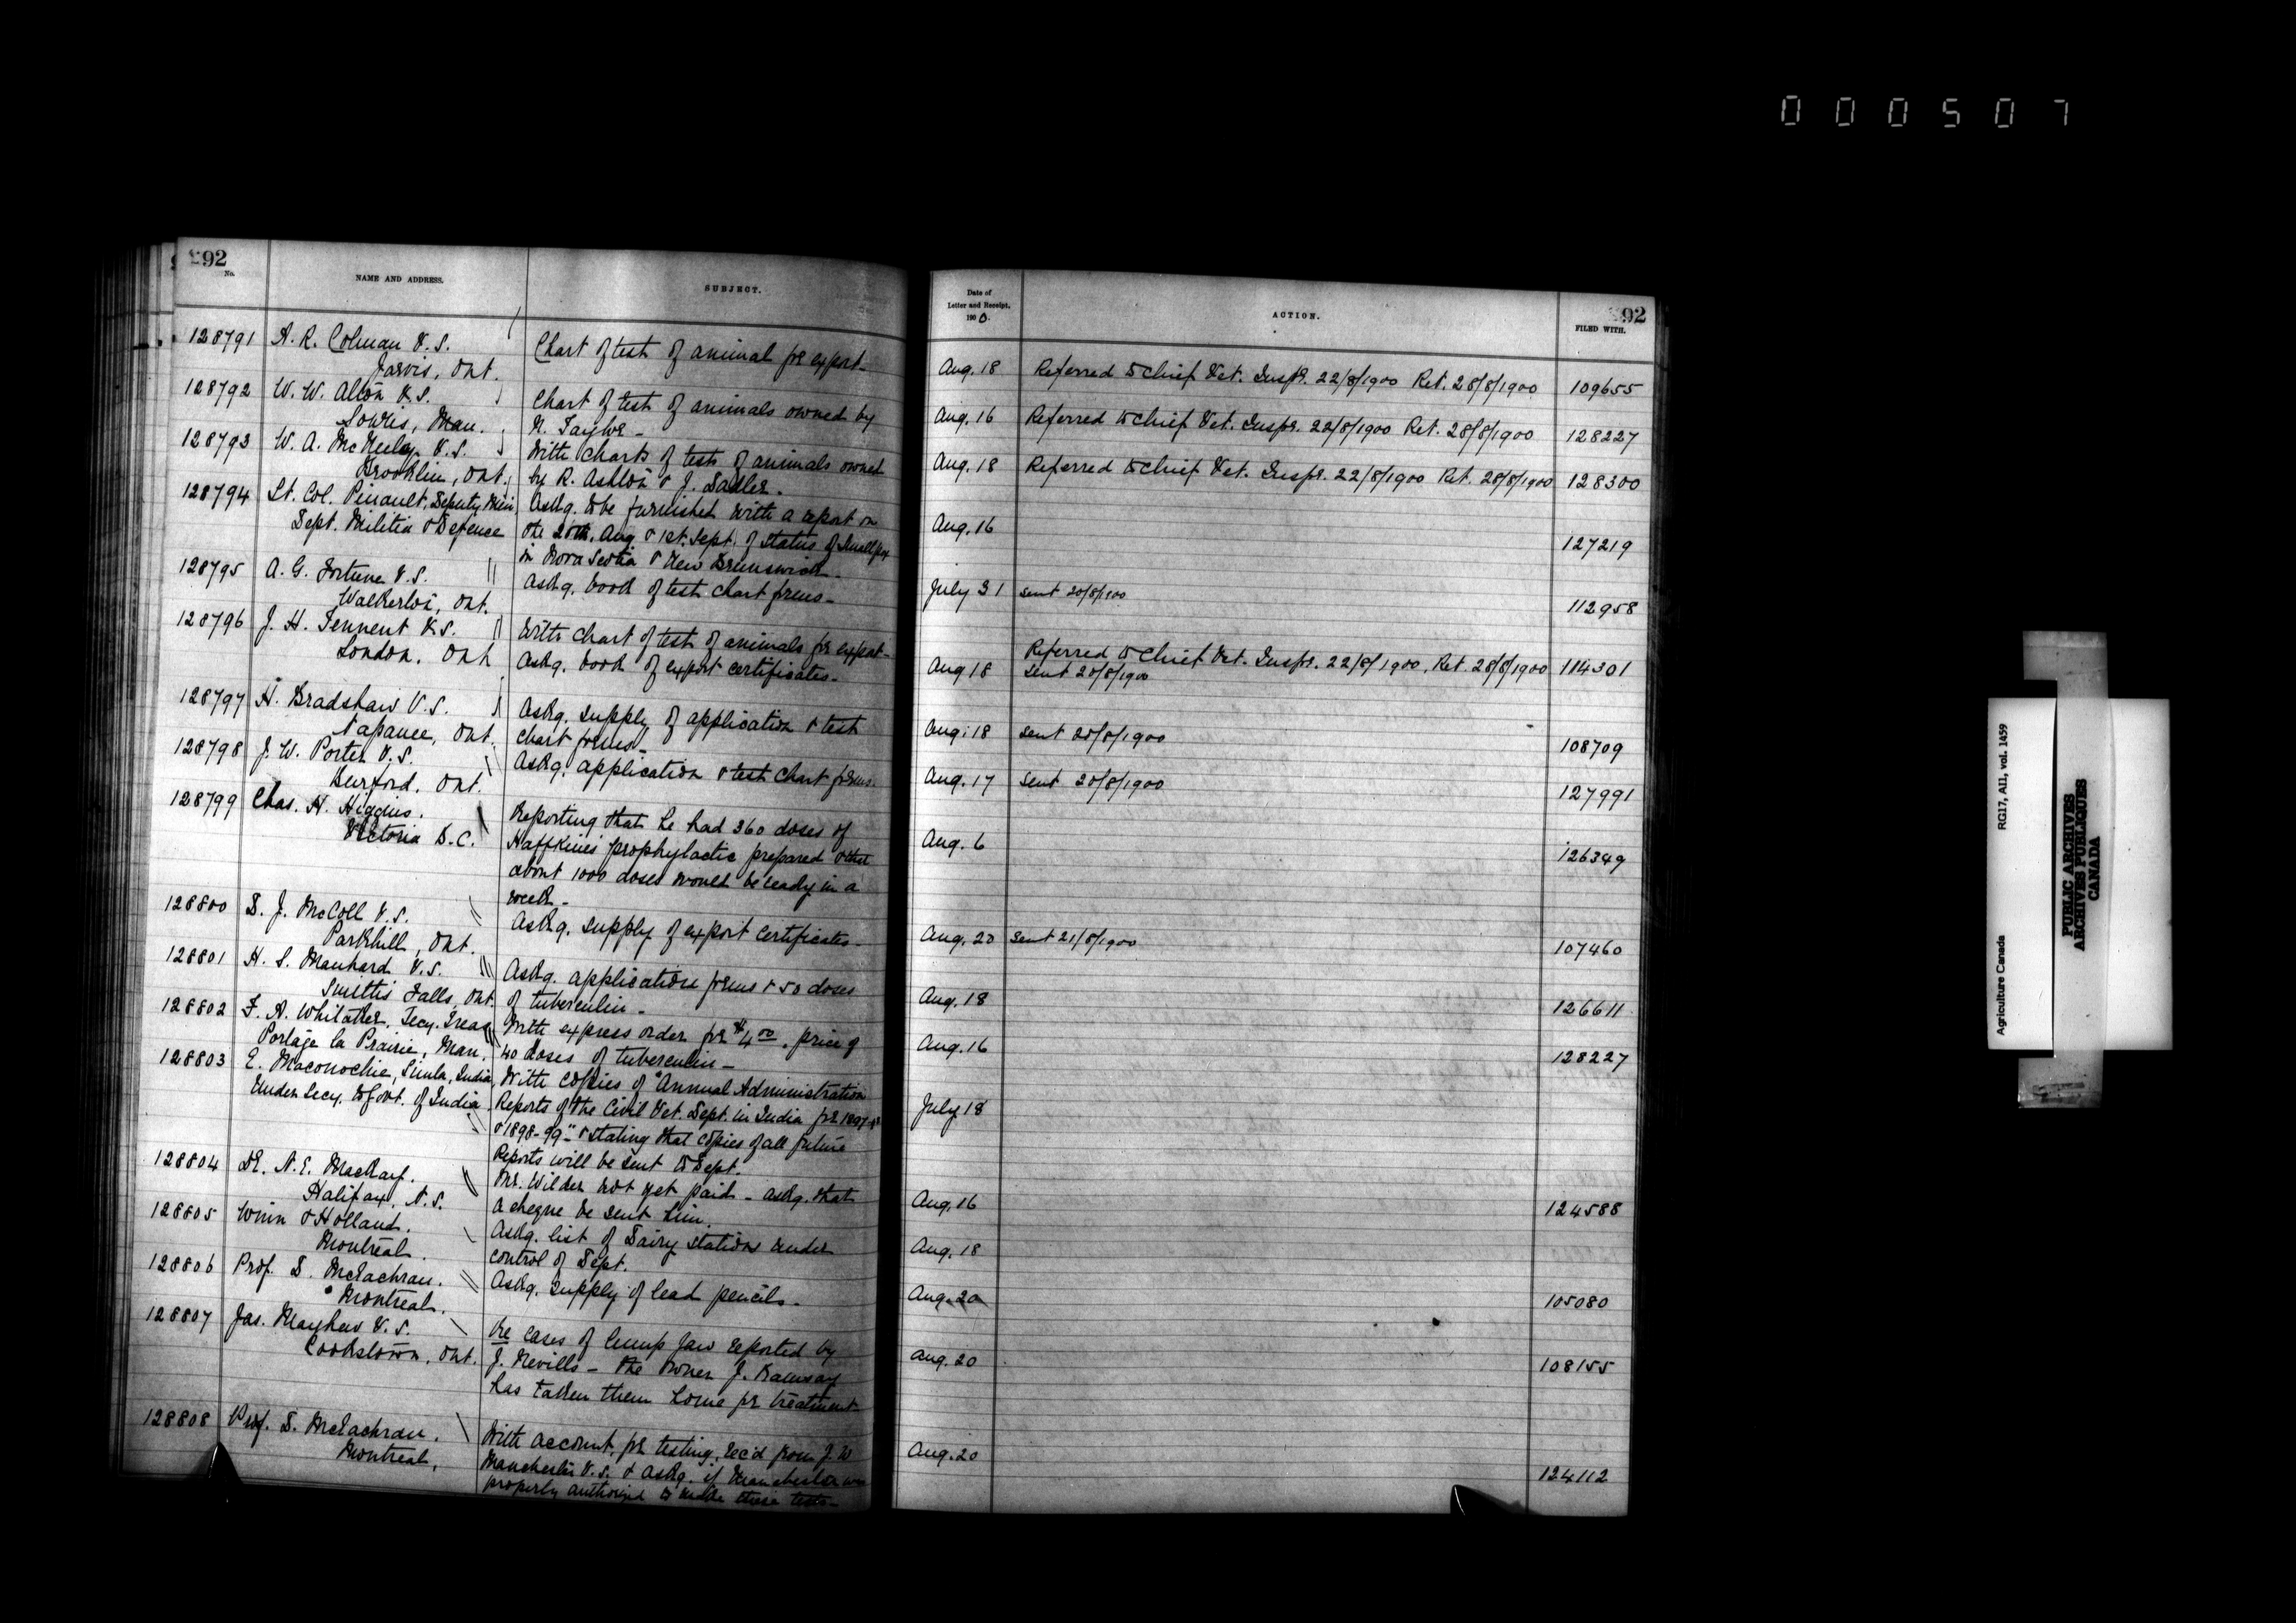 000507
292
No.
NAME AND ADDRESS.
SUBJECT.
128791 A. R. Colman V.S.
Jarvis, Ont.
Chart of test of animal for export -
128792 W. W. Alton V.S.
Souris, Man.
Chart of test of animals owned by
N. Taylor -
128793 W. A. McNeeley V.S.
Brooklin, Ont.
With charts of tests of animals owned
by R. Ashton & J. Sadler.
128794 Lt. Col. Pinault, Deputy Min
Dept. Militia & Defence
Askg. to be furnished with a report on
the 20th. Aug & 1st. Sept. of status of Smallpox
in Nova Scotia & New Brunswick -
128795 A. G. Fortune V.S.
Walkerton, Ont.
Askg. book of test chart forms -
128796 J. H. Tennent V.S.
London, Ont
With chart of test of animals for export -
Askg. book of export certificates -
128797 H. Bradshaw V.S.
Napanee, Ont.
Askg. supply of application & test
chart forms -
128798 J. W. Porter V.S.
Burford, Ont.
Askg. application & test chart forms.
128799 Chas. H. Higgins.
Victoria B.C.
Reporting that he had 360 doses of
Haffkines prophylactic prepared & that
about 1000 doses would be ready in a
week -
128800 D. J. McColl V.S.
Parkhill, Ont.
Askg. supply of export certificates -
128801 H. S. Manhard V.S.
Smiths Falls, Ont.
Askg. application forms & 50 doses
of tuberculin -
128802 F. A. Whitaker, Secy. Treas
Portage la Prairie, Man.
With express order for $4.00, price of
40 doses of tuberculin -
128803 E. Maconochie, Simla, India
Under Secy. to Govt. of India
With copies of "Annual Administration
Reports of the Civil Vet. Dept. in India for 1897-98
& 1898-99" & stating that copies of all future
Reports will be sent to Dept.
128804 Dr. N. E. MacKay.
Halifax, N.S.
Mr. Wilder not yet paid - askg. that
a cheque be sent him.
128805 Winn & Holland.
Montreal.
Askg. list of Dairy stations under
control of Dept.
128806 Prof. D. McEachran.
Montreal.
Askg. supply of lead pencils -
128807 Jas. Mayhew V.S.
Cookstown, Ont.
Re cases of lump jaw reported by
J. Nevills - the owner J. Ramsay
has taken them home for treatment
128808 Prof. D. McEachran.
Montreal,
With account, for testing, rec'd from J. W
Manchester V.S. & askg. if Manchester was
properly authorized to make these tests -
Date of
Letter and Receipt,
1900.
ACTION.
FILED WITH.
292
Aug. 18 Referred to Chief Vet. Inspr. 22/8/1900 Ret. 28/8/1900 109655
Aug. 16 Referred to Chief Vet. Inspr. 22/8/1900 Ret. 28/8/1900 128227
Aug. 18 Referred to Chief Vet. Inspr. 22/8/1900 Ret. 28/8/1900 128300
Aug. 16 127219
July 31 sent 20/8/1900 112958
Referred to Chief Vet. Inspr. 22/8/1900, Ret. 28/8/1900
Aug 18 sent 20/8/1900 114301
Aug. 18 sent 20/8/1900 108709
Aug. 17 sent 20/8/1900 127991
Aug. 6 126349
Aug. 20 sent 21/8/1900 107460
Aug. 18 126611
Aug. 16 128227
July 18
Aug. 16 124588
Aug. 18
Aug. 20 105080
Aug. 20 108155
Aug. 20 124112
Agriculture Canada
RG17, AI1, vol. 1459
PUBLIC ARCHIVES
ARCHIVES PUBLIQUES
CANADA